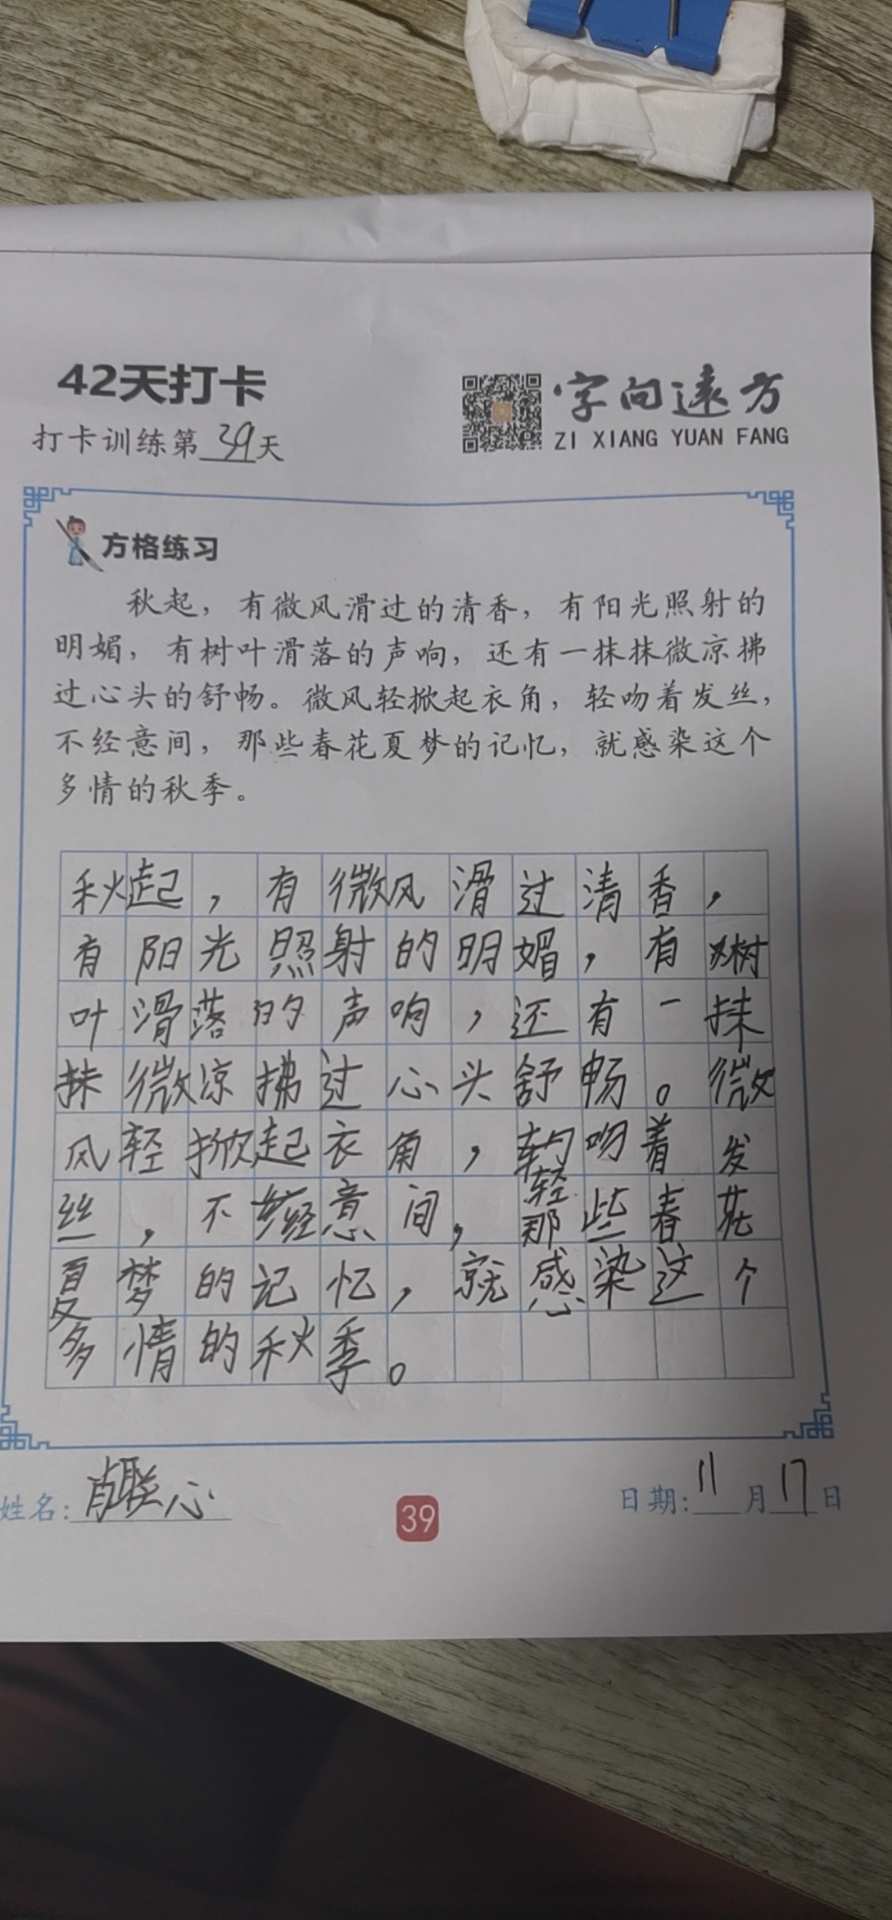 42天打卡
打卡训练第39天
字向远方
ZI XIANG YUAN FANG
方格练习
秋起，有微风滑过的清香，有阳光照射的
明媚，有树叶滑落的声响，还有一抹抹微凉拂
过心头的舒畅。微风轻掀起衣角，轻吻着发丝，
不经意间，那些春花夏梦的记忆，就感染这个
多情的秋季。
秋起，有微风滑过清香，
有阳光照射的明媚，有树
叶滑落的声响，还有一抹
抹微凉拂过心头舒畅。微
风轻掀起衣角，轻吻着发
丝，不经意间，那些春花
夏梦的记忆，就感染这个
多情的秋季。
姓名：肖联心
39
日期：11月17日